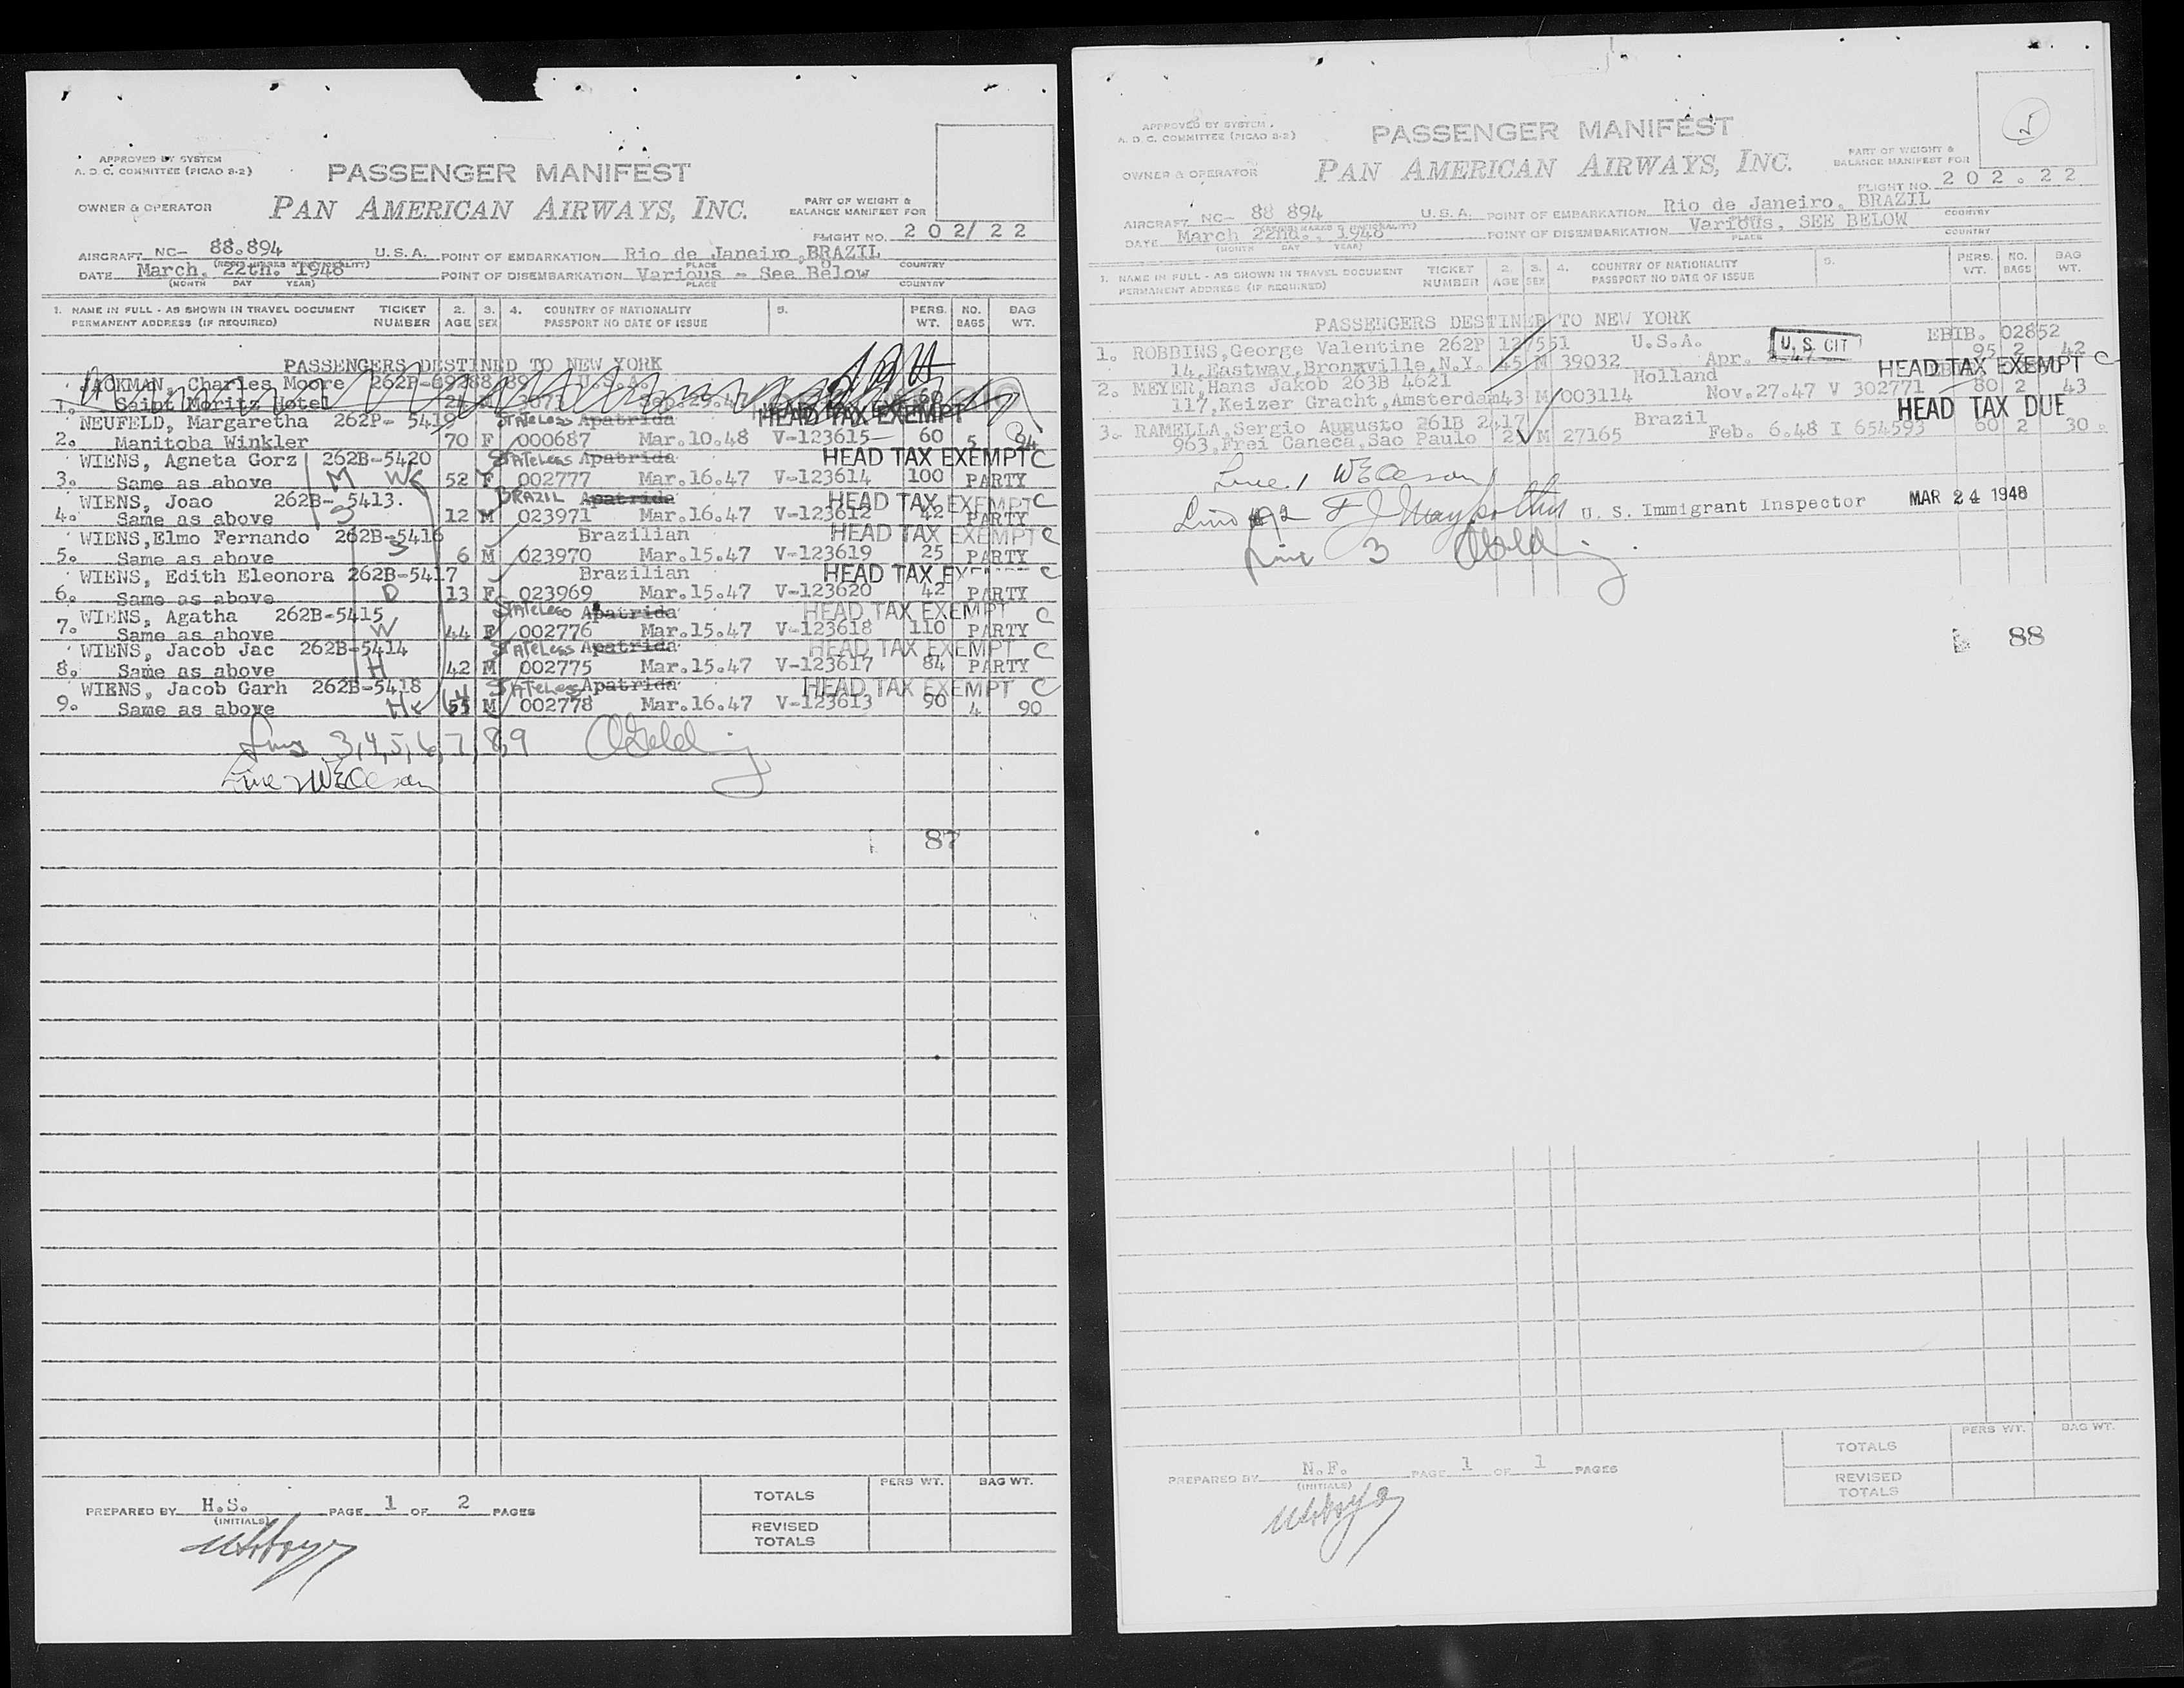 APPROVED BY SYSTEM
A. D. C. COMMITTEE (PICAO 8-2)
PASSENGER MANIFEST
OWNER & OPERATOR
PAN AMERICAN AIRWAYS, INC.
PART OF WEIGHT &
BALANCE MANIFEST FOR
FLIGHT NO. 2 0 2/ 2 2
AIRCRAFT NC- 88.894 U.S.A. POINT OF EMBARKATION Rio de Janeiro, BRAZIL
PLACE COUNTRY
DATE March, 22th. 1948 POINT OF DISEMBARKATION Various - See Below
(MONTH DAY YEAR) PLACE COUNTRY
1. NAME IN FULL - AS SHOWN IN TRAVEL DOCUMENT TICKET 2. 3. 4. COUNTRY OF NATIONALITY 5. PERS. NO. BAG
PERMANENT ADDRESS (IF REQUIRED) NUMBER AGE SEX PASSPORT NO DATE OF ISSUE WT. BAGS WT.
PASSENGERS DESTINED TO NEW YORK
JACKMAN, Charles Moore U.S.A.
1. Saint Moritz Hotel
HEAD TAX EXEMPT
NEUFELD, Margaretha 262P- 5419 STATELESS Apatrida
2. Manitoba Winkler 70 F 000687 Mar.10.48 V-123615 60 5 94
WIENS, Agneta Gorz 262B-5420 STATELESS Apatrida HEAD TAX EXEMPT C
3. Same as above M 52 F 002777 Mar.16.47 V-123614 100 PARTY
WIENS, Joao 262B- 5413. BRAZIL Apatrida HEAD TAX EXEMPT C
4. Same as above S 12 M 023971 Mar.16.47 V-123612 42 PARTY
WIENS,Elmo Fernando 262B-5416 Brazilian HEAD TAX EXEMPT C
5. Same as above S 6 M 023970 Mar.15.47 V-123619 25 PARTY
WIENS, Edith Eleonora 262B-5417 Brazilian HEAD TAX EXEMPT C
6. Same as above D 13 F 023969 Mar.15.47 V-123620 42 PARTY
WIENS, Agatha 262B-5415 STATELESS Apatrida HEAD TAX EXEMPT C
7. Same as above W 44 F 002776 Mar.15.47 V-123618 110 PARTY
WIENS, Jacob Jac 262B-5414 STATELESS Apatrida HEAD TAX EXEMPT C
8. Same as above H 42 M 002775 Mar.15.47 V-123617 84 PARTY
WIENS, Jacob Garh 262B-5418 STATELESS Apatrida HEAD TAX EXEMPT C
9. Same as above M 002778 Mar.16.47 V-123613 90 4 90
Lines 3,4,5,6,7,8,9
Line 2
87
PERS WT. BAG WT.
TOTALS
PREPARED BY H.S. PAGE 1 OF 2 PAGES
(INITIALS)
REVISED
TOTALS
APPROVED BY SYSTEM
A. D. C. COMMITTEE (PICAO 8-2)
PASSENGER MANIFEST
OWNER & OPERATOR
PAN AMERICAN AIRWAYS, INC.
PART OF WEIGHT &
BALANCE MANIFEST FOR
FLIGHT NO. 2 0 2 . 2 2
AIRCRAFT NC- 88 894 U.S.A. POINT OF EMBARKATION Rio de Janeiro, BRAZIL
COUNTRY
DATE March 22nd., 1948 POINT OF DISEMBARKATION Various, SEE BELOW
(MONTH DAY YEAR) PLACE COUNTRY
1. NAME IN FULL - AS SHOWN IN TRAVEL DOCUMENT TICKET 2. 3. 4. COUNTRY OF NATIONALITY 5. PERS. NO. BAG
PERMANENT ADDRESS (IF REQUIRED) NUMBER AGE SEX PASSPORT NO DATE OF ISSUE WT. BAGS WT.
PASSENGERS DESTINED TO NEW YORK
1. ROBBINS,George Valentine 262P 127551 U.S.A. U. S. CIT EBIB. 02852
14,Eastway,Bronxville,N.Y. 45 M 39032 Apr. 95 2 42
2. MEYER,Hans Jakob 263B 4621 Holland HEAD TAX EXEMPT C
117,Keizer Gracht,Amsterdam 43 M 003114 Nov.27.47 V 302771 80 2 43
3. RAMELLA,Sergio Augusto 261B 2417 Brazil HEAD TAX DUE
963,Frei Caneca,Sao Paulo M 27165 Feb. 6.48 I 654593 60 2 30
Line 1
U. S. Immigrant Inspector MAR 24 1948
Line 3
88
PERS WT. BAG WT.
TOTALS
PREPARED BY N.F. PAGE 1 OF 1 PAGES
(INITIALS)
REVISED
TOTALS